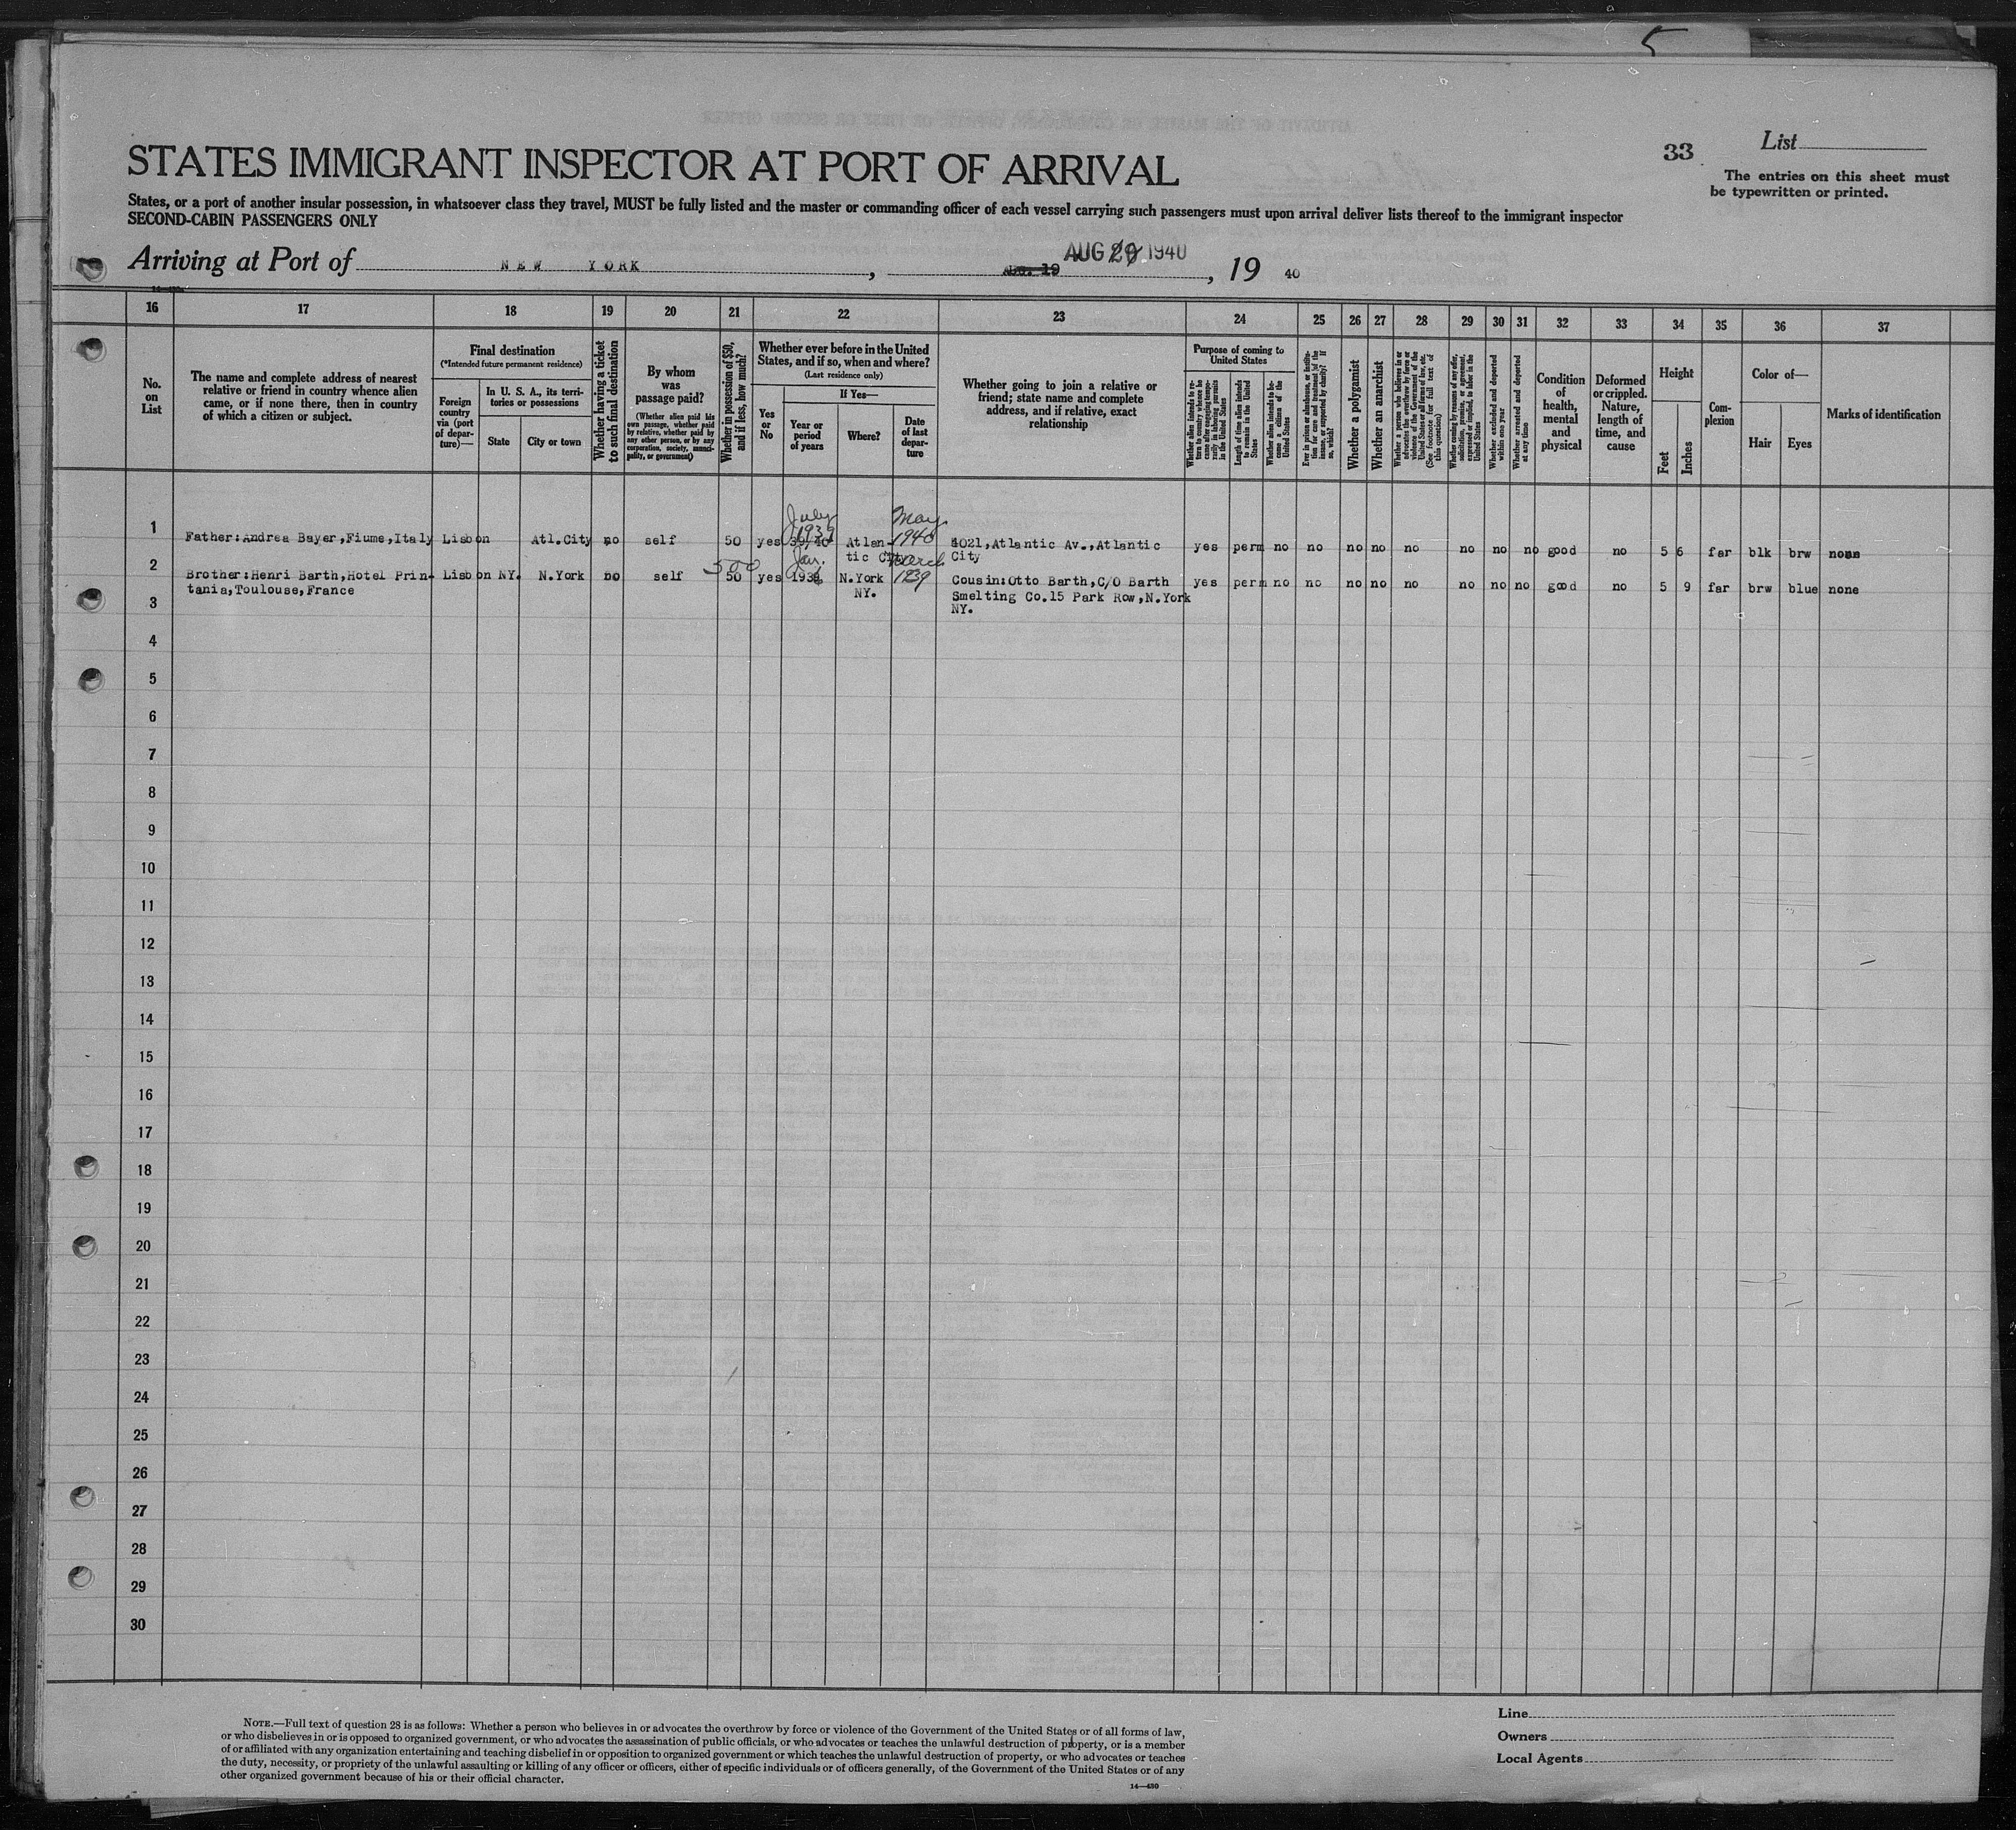 5
STATES IMMIGRANT INSPECTOR AT PORT OF ARRIVAL
33
List
The entries on this sheet must
be typewritten or printed.
States, or a port of another insular possession, in whatsoever class they travel, MUST be fully listed and the master or commanding officer of each vessel carrying such passengers must upon arrival deliver lists thereof to the immigrant inspector
SECOND-CABIN PASSENGERS ONLY
Arriving at Port of NEW YORK, AUG. 19 AUG 1940, 19 40
16 17 18 19 20 21 22 23 24 25 26 27 28 29 30 31 32 33 34 35 36 37
No.
on
List
The name and complete address of nearest
relative or friend in country whence alien
came, or if none there, then in country
of which a citizen or subject.
Final destination
(*Intended future permanent residence)
Foreign
country
via (port
of depar-
ture)—
In U. S. A., its terri-
tories or possessions
State
City or town
Whether having a ticket
to such final destination
By whom
was
passage paid?
(Whether alien paid his
own passage, whether paid
by relative, whether paid by
any other person, or by any
corporation, society, munici-
pality, or government)
Whether in possession of $50,
and if less, how much?
Whether ever before in the United
States, and if so, when and where?
(Last residence only)
Yes
or
No
If Yes—
Year or
period
of years
Where?
Date
of last
depar-
ture
Whether going to join a relative or
friend; state name and complete
address, and if relative, exact
relationship
Purpose of coming to
United States
Whether alien intends to re-
turn to country whence he
came after engaging tempo-
rarily in laboring pursuits
in the United States
Length of time alien intends
to remain in the United
States
Whether alien intends to be-
come a citizen of the
United States
Ever in prison or almshouse, or institu-
tion for care and treatment of the
insane, or supported by charity? If
so, which?
Whether a polygamist
Whether an anarchist
Whether a person who believes in or
advocates the overthrow by force or
violence of the Government of the
United States or all forms of law, etc.
(See footnote for full text of
this question)
Whether coming by reasons of any offer,
solicitation, promise, or agreement,
expressed or implied, to labor in the
United States
Whether excluded and deported
within one year
Whether arrested and deported
at any time
Condition
of
health,
mental
and
physical
Deformed
or crippled.
Nature,
length of
time, and
cause
Height
Feet
Inches
Com-
plexion
Color of—
Hair
Eyes
Marks of identification
July May
1 Father:Andrea Bayer,Fiume,Italy Lisbon Atl.City no self 50 yes 39/40 1939 Atlan- 1940 4021,Atlantic Av.,Atlantic yes perm no no no no no no no no good no 5 6 far blk brw none
tic City City
500 Jan. March
2 Brother:Henri Barth,Hotel Prin- Lisbon NY. N.York no self 50 yes N.York 1939 Cousin:Otto Barth,C/O Barth yes perm no no no no no no no no good no 5 9 far brw blue none
tania,Toulouse,France NY. Smelting Co.15 Park Row,N.York
3 NY.
4
5
6
7
8
9
10
11
12
13
14
15
16
17
18
19
20
21
22
23
24
25
26
27
28
29
30
NOTE.—Full text of question 28 is as follows: Whether a person who believes in or advocates the overthrow by force or violence of the Government of the United States or of all forms of law,
or who disbelieves in or is opposed to organized government, or who advocates the assassination of public officials, or who advocates or teaches the unlawful destruction of property, or is a member
of or affiliated with any organization entertaining and teaching disbelief in or opposition to organized government or which teaches the unlawful destruction of property, or who advocates or teaches
the duty, necessity, or propriety of the unlawful assaulting or killing of any officer or officers, either of specific individuals or of officers generally, of the Government of the United States or of any
other organized government because of his or their official character.
14—480
Line
Owners
Local Agents